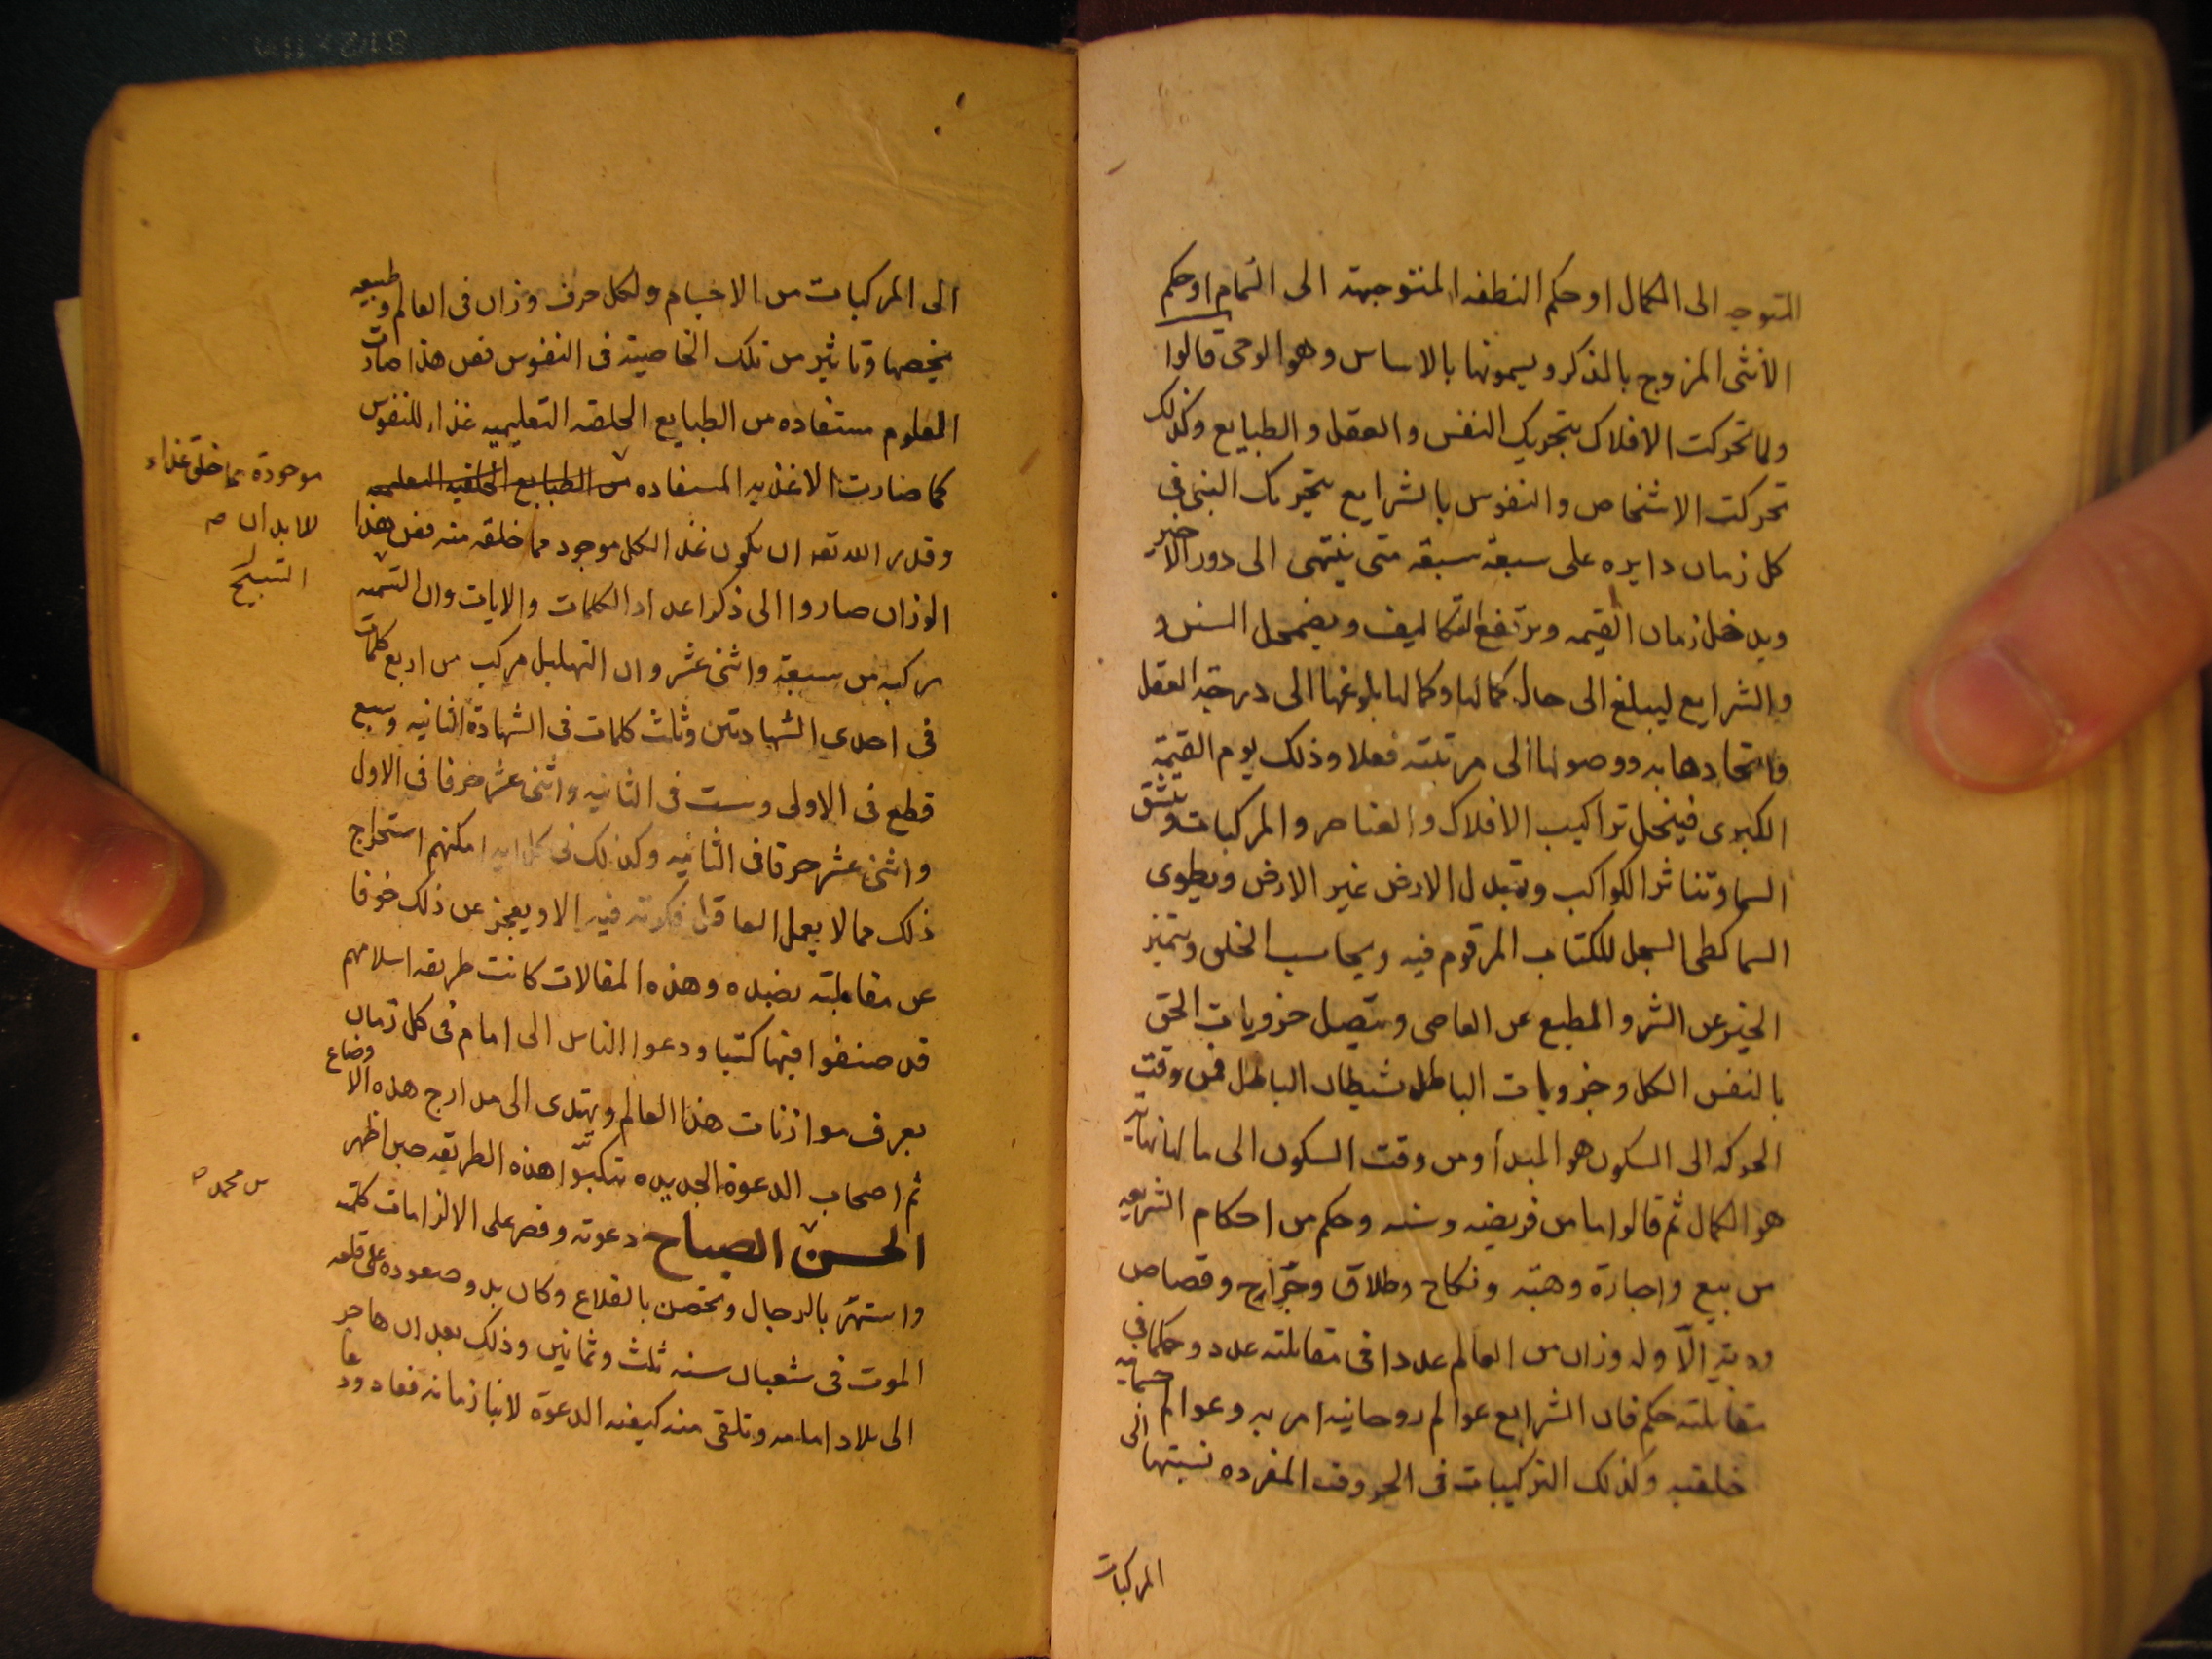 المتوجه الى الكمال او حكم النطفه المتوجهة الى التمام او حكم
الانثى المزوج بالذكر ويسمونها بالاساس وهو الوحى قالوا
ولما تحركت الافلاك بتحريك النفس والعقل والطبايع وكذلك
تحركت الاشخاص والنفوس بالشرايع بتحريك النبى فى
كل زمان دايره على سبعة سبقه متى ينتهى الى دور الاخير
ويدخل زمان القيمه وترتفع التكاليف ويضمحل السنن و
والشرايع ليبلغ الى حال كمالها وكمالها بلوغها الى درجة العقل
واتحادها به ووصولها الى مرتبته فعلا وذلك يوم القيمة
الكبرى فينحل تراكيب الافلاك والعناصر والمركبات وينشق
السما وتناثر الكواكب وتبدل الارض غير الارض ويطوى
السما كطى السجل للكتاب المرقوم فيه ويحاسب الخلق ويتميز
الخير عن الشر والمطيع عن العاصى ويتصل جزويات الحق
بالنفس الكل وجزويات الباطل بشيطان الباطل فمن وقت
الحركه الى السكون هو المبدأ ومن وقت السكون الى ما لانهاية
هو الكمال ثم قالوا ما من فريضه وسنه وحكم من احكام الشريعه
من بيع واجارة وهبة ونكاح وطلاق وجراح وقصاص
ودية الّا وله وزان من العالم عددا فى مقابلته عدد وحكما فى
مقابلته حكم فان الشرايع عوالم روحانيه امريه وعوالم جسمانيه
خلقيه وكذلك التركيبات فى الحروف المفرده نسبتها الى
المركبات
الى المركبات من الاجسام ولكل حرف وزان فى العالم وطبيعه
يخصها وتاثير من تلك الخاصية فى النفوس فعن هذا صارت
العلوم مستفاده من الطبايع الخلقه التعليميه غذاء للنفوس
كما صارت الاغذيه المستفاده من الطبايع الخلقيه التعليميه
موجودة مما خلق غذاء
للابدان صح
وقدر الله تعه ان يكون غذ الكل موجود مما خلقه منه فعن هذا
الوزان صاروا الى ذكر اعداد الكلمات والايات وان التسميه
التسبيح
مركبه من سبعة واثنى عشر وان التهليل مركب من اربع كلمات
فى احدى الشهادتين وثلث كلمات فى الشهادة الثانيه وسبع
قطع فى الاولى وست فى الثانيه واثنى عشر حرفا فى الاول
واثنى عشر حرفا فى الثانيه وكذلك فى كل ايه امكنهم استخراج
ذلك مما لا يعمل العاقل فكرته فيه الا ويعجز عن ذلك خوفا
عن مقابلته بضده وهذه المقالات كانت طريقه اسلافهم
قد صنفوا فيها كتبا ودعوا الناس الى امام فى كل زمان
يعرف موازنات هذا العالم ويهتدى الى مدارج هذه الاوضاع
ثم اصحاب الدعوة الجديده تنكبوا هذه الطريقه حين اظهر
الحسن الصباح دعوته وقصر على الالزامات كلمته
بن محمد صح
واستهر بالرجال وتحصن بالقلاع وكان بدو صعوده على قلعه
الموت فى شعبان سنه ثلث وثمانين وذلك بعد ان هاجر
الى بلاد امامه وتلقى منه كيفيه الدعوة لابنا زمانه فعاد ودعا